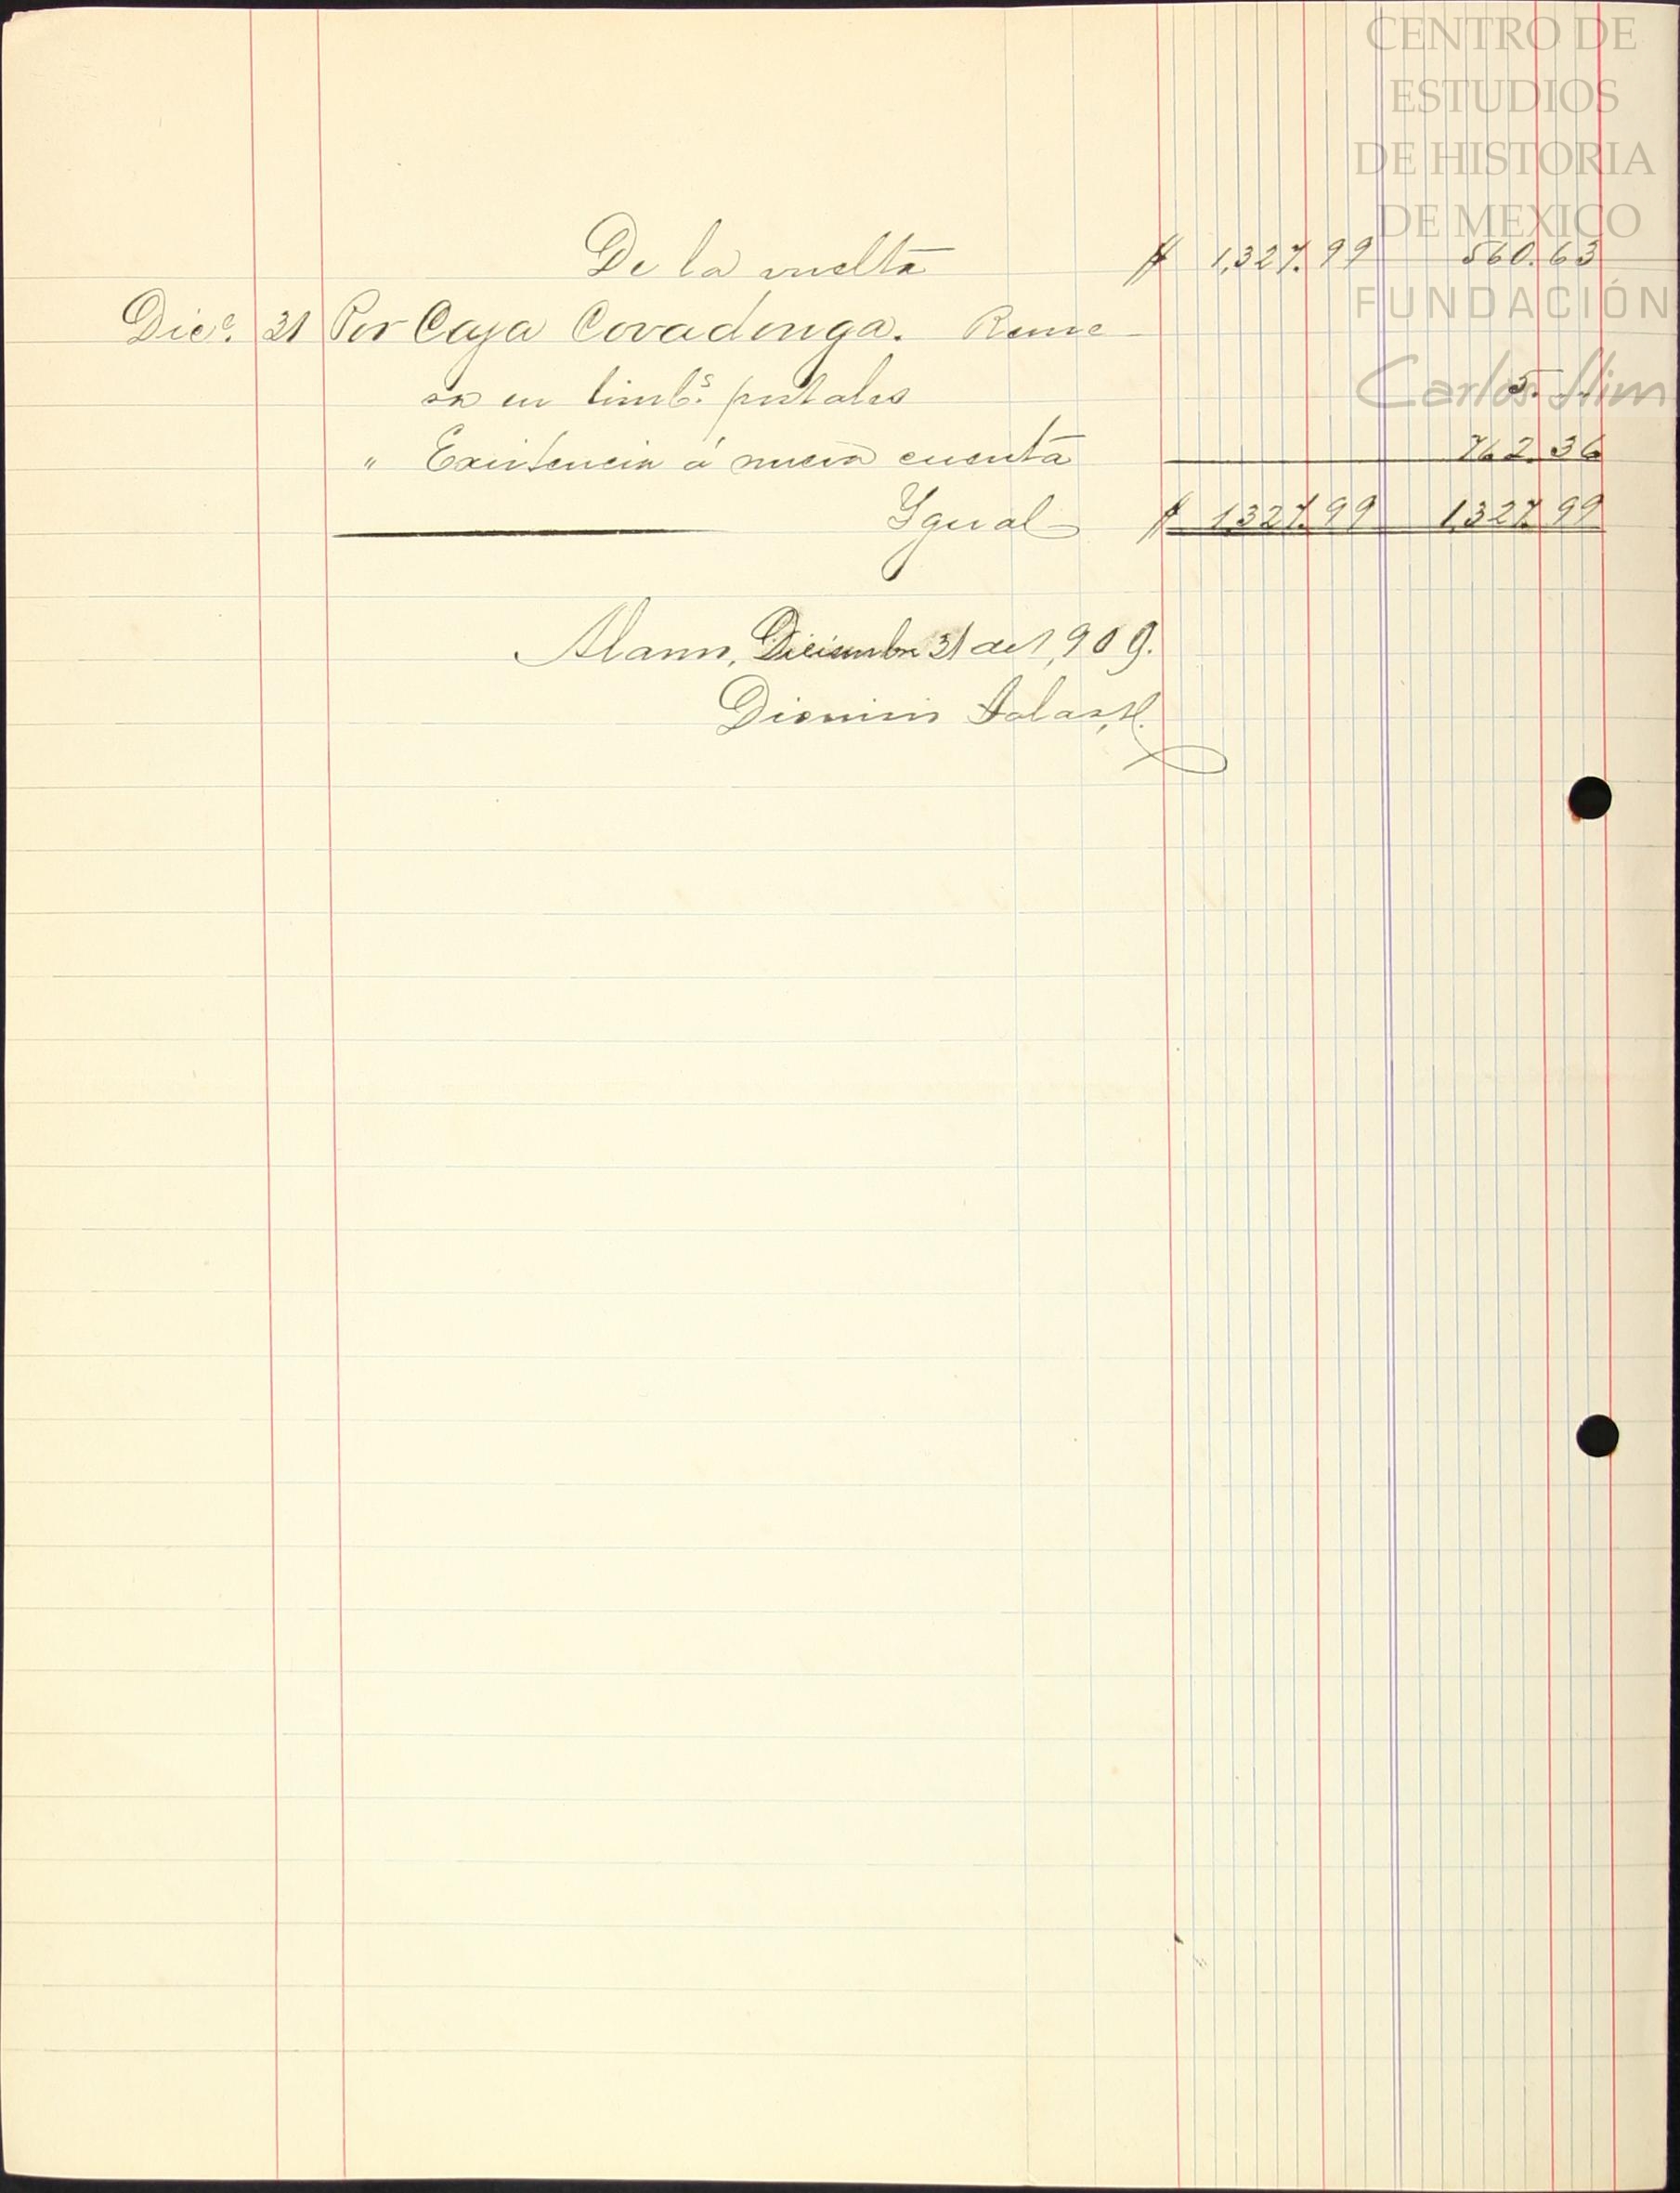 CENTRO DE
ESTUDIOS
DE HISTORIA
DE MEXICO
FUNDACIÓN
Carlos Slim
De la vuelta $ 1,327.99 560.63
Dice. 31 Por Caja Covadonga. Reme
sa en timbs. postales 5. "
" Existencia á nueva cuenta 762.36
Ygual $ 1,327.99 1,327.99
Alamo, Diciembre 31 de 1,909.
Dionisio Salas, H.